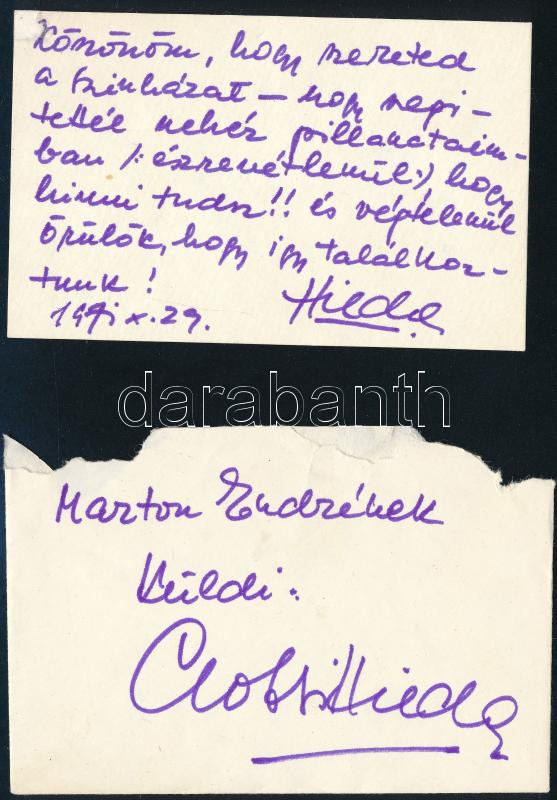 Köszönöm, hogy szereted
a színházat – hogy segí-
tettél nehéz pillanataim-
ban /: észrevétlenül :/, hogy
hinni tudsz!! és végtelenül
örülök, hogy így találkoz-
tunk!
Hilda
1971 x. 29.
darabanth
Marton Endrének
Küldi:
Gobbi Hilda